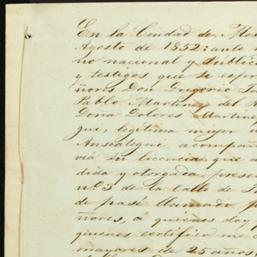 En la Ciudad de Mé
Agosto de 1852: ante
no nacional y público
y testigos que se espre
ñores Don Gregorio
Pablo Martinez del
Doña Dolores Martine
qui, legitima mujer
Ansoategui, acompañ
via la licencia que
dida y otorgada, presen
nº 3 de la calle de
de
ñores, á quienes doy
quienes certifico
mayores de 25 años,